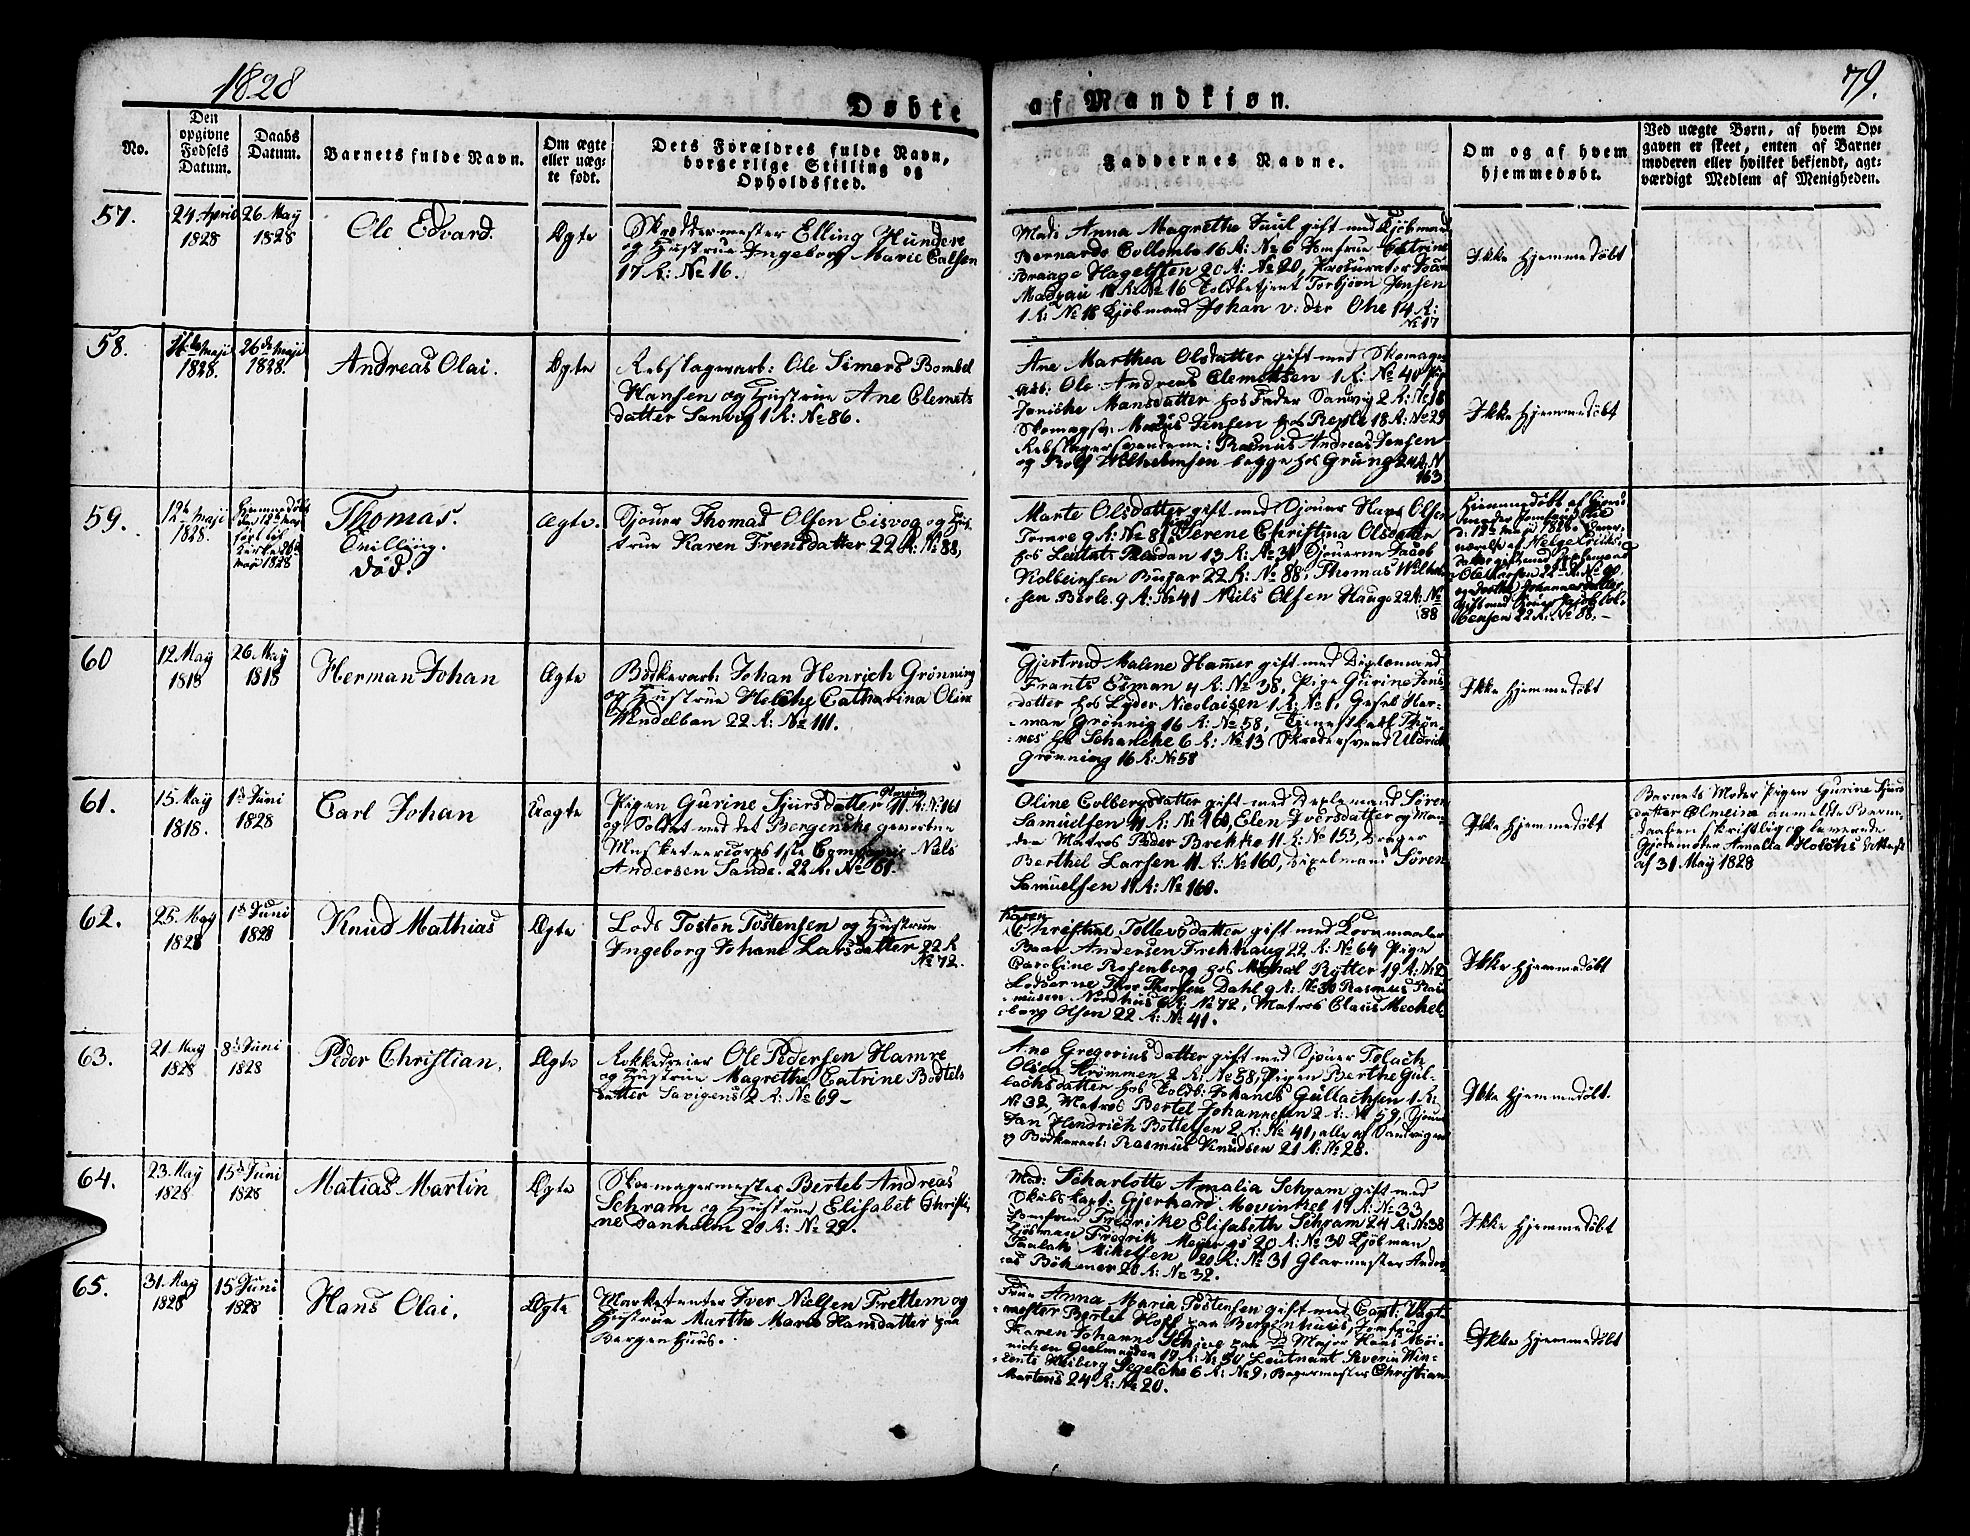 1828
79.
Døbte af Mandkjøn.
No.
Den
opgivne
Fødsels
Datum.
Daabs
Datum.
Barnets fulde Navn.
Om ægte
eller uæg-
te født.
Dets Forældres fulde Navn,
borgerlige Stilling og
Opholdssted.
Faddernes Navne.
Om og af hvem
hjemmedøbt.
Ved uægte Børn, af hvem Op-
gaven er skeet, enten af Barne-
moderen eller hvilket bekjendt, agt-
værdigt Medlem af Menigheden.
57.
24 April
1828
26 May
1828
Ole Edvard.
Ægte
Skreddermester Elling Hundere
og Hustrue Ingeborg Marie Carlsen
17 R: No 16.
Mad: Anna Magrethe Juul gift med Kjøbmand
Bernardo Collombo 16 R: No 6 Jomfrue Catrine
Braage Hagelsten 20 R: No 20, Procurator
No 16 Toldbetjent Torbjørn Jensen
1 R: No 18 Kjøbmand Johan v: der Ohe 14 R:
No 17
Ikke Hjemmedøbt
58.
Maji
1828.
26de Maji
1828.
Andreas Olai.
Ægte
Rebslagerarb: Ole Simers Bombel
Hansen og Hustrue Ane Clemets
datter Sanvig 1 R: No 86.
Ane Marthea Olsdatter gift med Skomager
arb: Ole Andreas Clemetsen 1 R: No 40 Pige
Mansdatter hos Fader Sandvig 2 R:
Jensen hos 18 R: No 29
Rebslagersvendene: Rasmus Andreas Jensen
og Rolf Wilhelmsen begge hos Grung 24 R: N
163
Ikke Hjemmedøbt
59.
12te Maji
1828.
Hjemmedøbt
den 13de May
ført til
Kirke
May 1828
Thomas.
Tvilling.
død.
Ægte.
Sjouer Thomas Olsen Eisvog og Hus-
true Karen Frensdatter 22 R: No 88,
Marte Olsdatter gift med Sjouer Hans Olsen
9 R: No 81, Serene Christina Olsdatter
hos Leutnt: 13 R: No 31 Sjouerne Jacob
Kolbeinsen Bugar 22 R: No 88, Thomas Wilhelm
sen Berle 9 R: No 41 Niels Olsen Hauge 22 R: No
88
Hjemmedøbt af
May 1828.
Ole Larsen 22 R: No
gift med Sjouer Jacob Col-
bensen 22 R: No 88,-
60
12 May
1818
26 May
1818
Herman Johan
Ægte
Bødkerarb: Johan Henrich Grønning
og Hustrue Helche Catharina Oline
Wendelban 22 R: No 111.
Gjertrud Malene Hammer gift med Diplomand
Frants Esman 4 R: No 38, Pige Gurine Jens-
datter hos Lyder Nicolaisen 1 R: No 1, Gesel Her-
man Grønnig 16 R: No 58, Tjenestkarl Thøn-
nes hos Schanche 6 R: No 13 Skredersvend Uldrich
Grønning 16 R: No 58
Ikke Hjemmedøbt
61.
15 May
1818.
1ste Juni
1828
Carl Johan
Uægte
Pigen Gurine Sjursdatter Olmeim 11 R: No 161
og Soldat med det Bergenske gevorbne
Musketeercorps 1ste Compagnie Niels
Andersen Sande. 22 R: No 61.
Oline Colbergsdatter gift med Dixlemand Søren
Samuelsen 11 R: No 160, Elen Iversdatter og Man-
den Matros Peder Brekke 11 R: No 153, Drager
Berthel Larsen 11 R: No 160, Dixelmand Søren
Samuelsen 11 R: No 160.
Ikke Hjemmedøbt
Barnets Moder Pigen Gurine Sjurs
datter Olmeim anmeldte Barne-
daaben skriftlig og leverede
Gjordemoder Amalia Holchs Attest
af 31 May 1828
62.
25. May
1828
1ste Juni
1828
Knud Mathias
Ægte
Lods Tosten Tostensen og Hustrue
Ingeborg Johane Larsdatter 22 R
No 72.
Karen
Christine Tollevsdatter gift med Kornmaaler
Baar Andersen Frekhaug 22 R: No 64 Pige
Caroline Rosenberg hos Michal Rytter 19 R: No 25
Lodserne Thor Thorsen Dahl 9 R: No 30 Rasmus Ras-
musen Nordhus 6 R: No 72, Matros Claus Mechel-
borg Olsen 22 R: No 41.
Ikke Hjemmedøbt
63.
21 May
1828
8de Juni
1828
Peder Christian.
Ægte
Rokkedreier Ole Pedersen Hamre
og Hustrue Magrethe Catrine Bottels
datter Savigens 2 R: No 69-
Ane Gregoriusdatter gift med Sjouer Tolach
Olsen Strømmen 2 R: No 58, Pigen Berthe Gul-
lachsdatter hos Toldb: Johanes Gullachsen 1 R:
No 32, Matros Bertel Johannesen 2 R: No 59, Sjouer
Jan Hendrich Bottelsen 2 R: No 41, alle af Sandvigen
og Bødkerarb: Rasmus Knudsen 21 R: No 28.
Ikke Hjemmedøbt.
64.
23. May
1828
15de Juni
1828
Matias Martin
Ægte
Skomagermester Bertel Andreas
Schram og Hustrue Elisabet Christi-
ne Danholm 20 R: No 29.
Mad: Scharlotte Amalia Schram gift med
Skibskapt: Gjerhard Movinkel 17 R: No 33
Jomfrue Fredrike Elisabeth Schram 24 R: No 38
Kjøbman Fredrik Meyer 20 R: No 30 Kjøbman
Mikelsen 20 R: No 31 Glarmester Andre-
as Böhmer 20 R: No 32.
Ikke Hjemmedøbt
65.
31. May
1828
15de Juni
1828
Hans Olai.
Ægte
Marketenter Iver Nielsen Frettem og
Hustrue Marthe Marie Hansdatter paa
Bergenhuus.
Frue Anna Maria Tostensen gift med Capt: Vagt-
mester Bertel Hoff paa Bergenhuus, Jomfrue
Karen Johanne Major Hans Møi-
nichen Geelmuyden 17 R: No 50 Leutnant Severin Win-
cents Heiberg Segelche 6 R: No 9, Bagermester Christian
Martens 24 R: No 20.
Ikke Hjemmedøbt